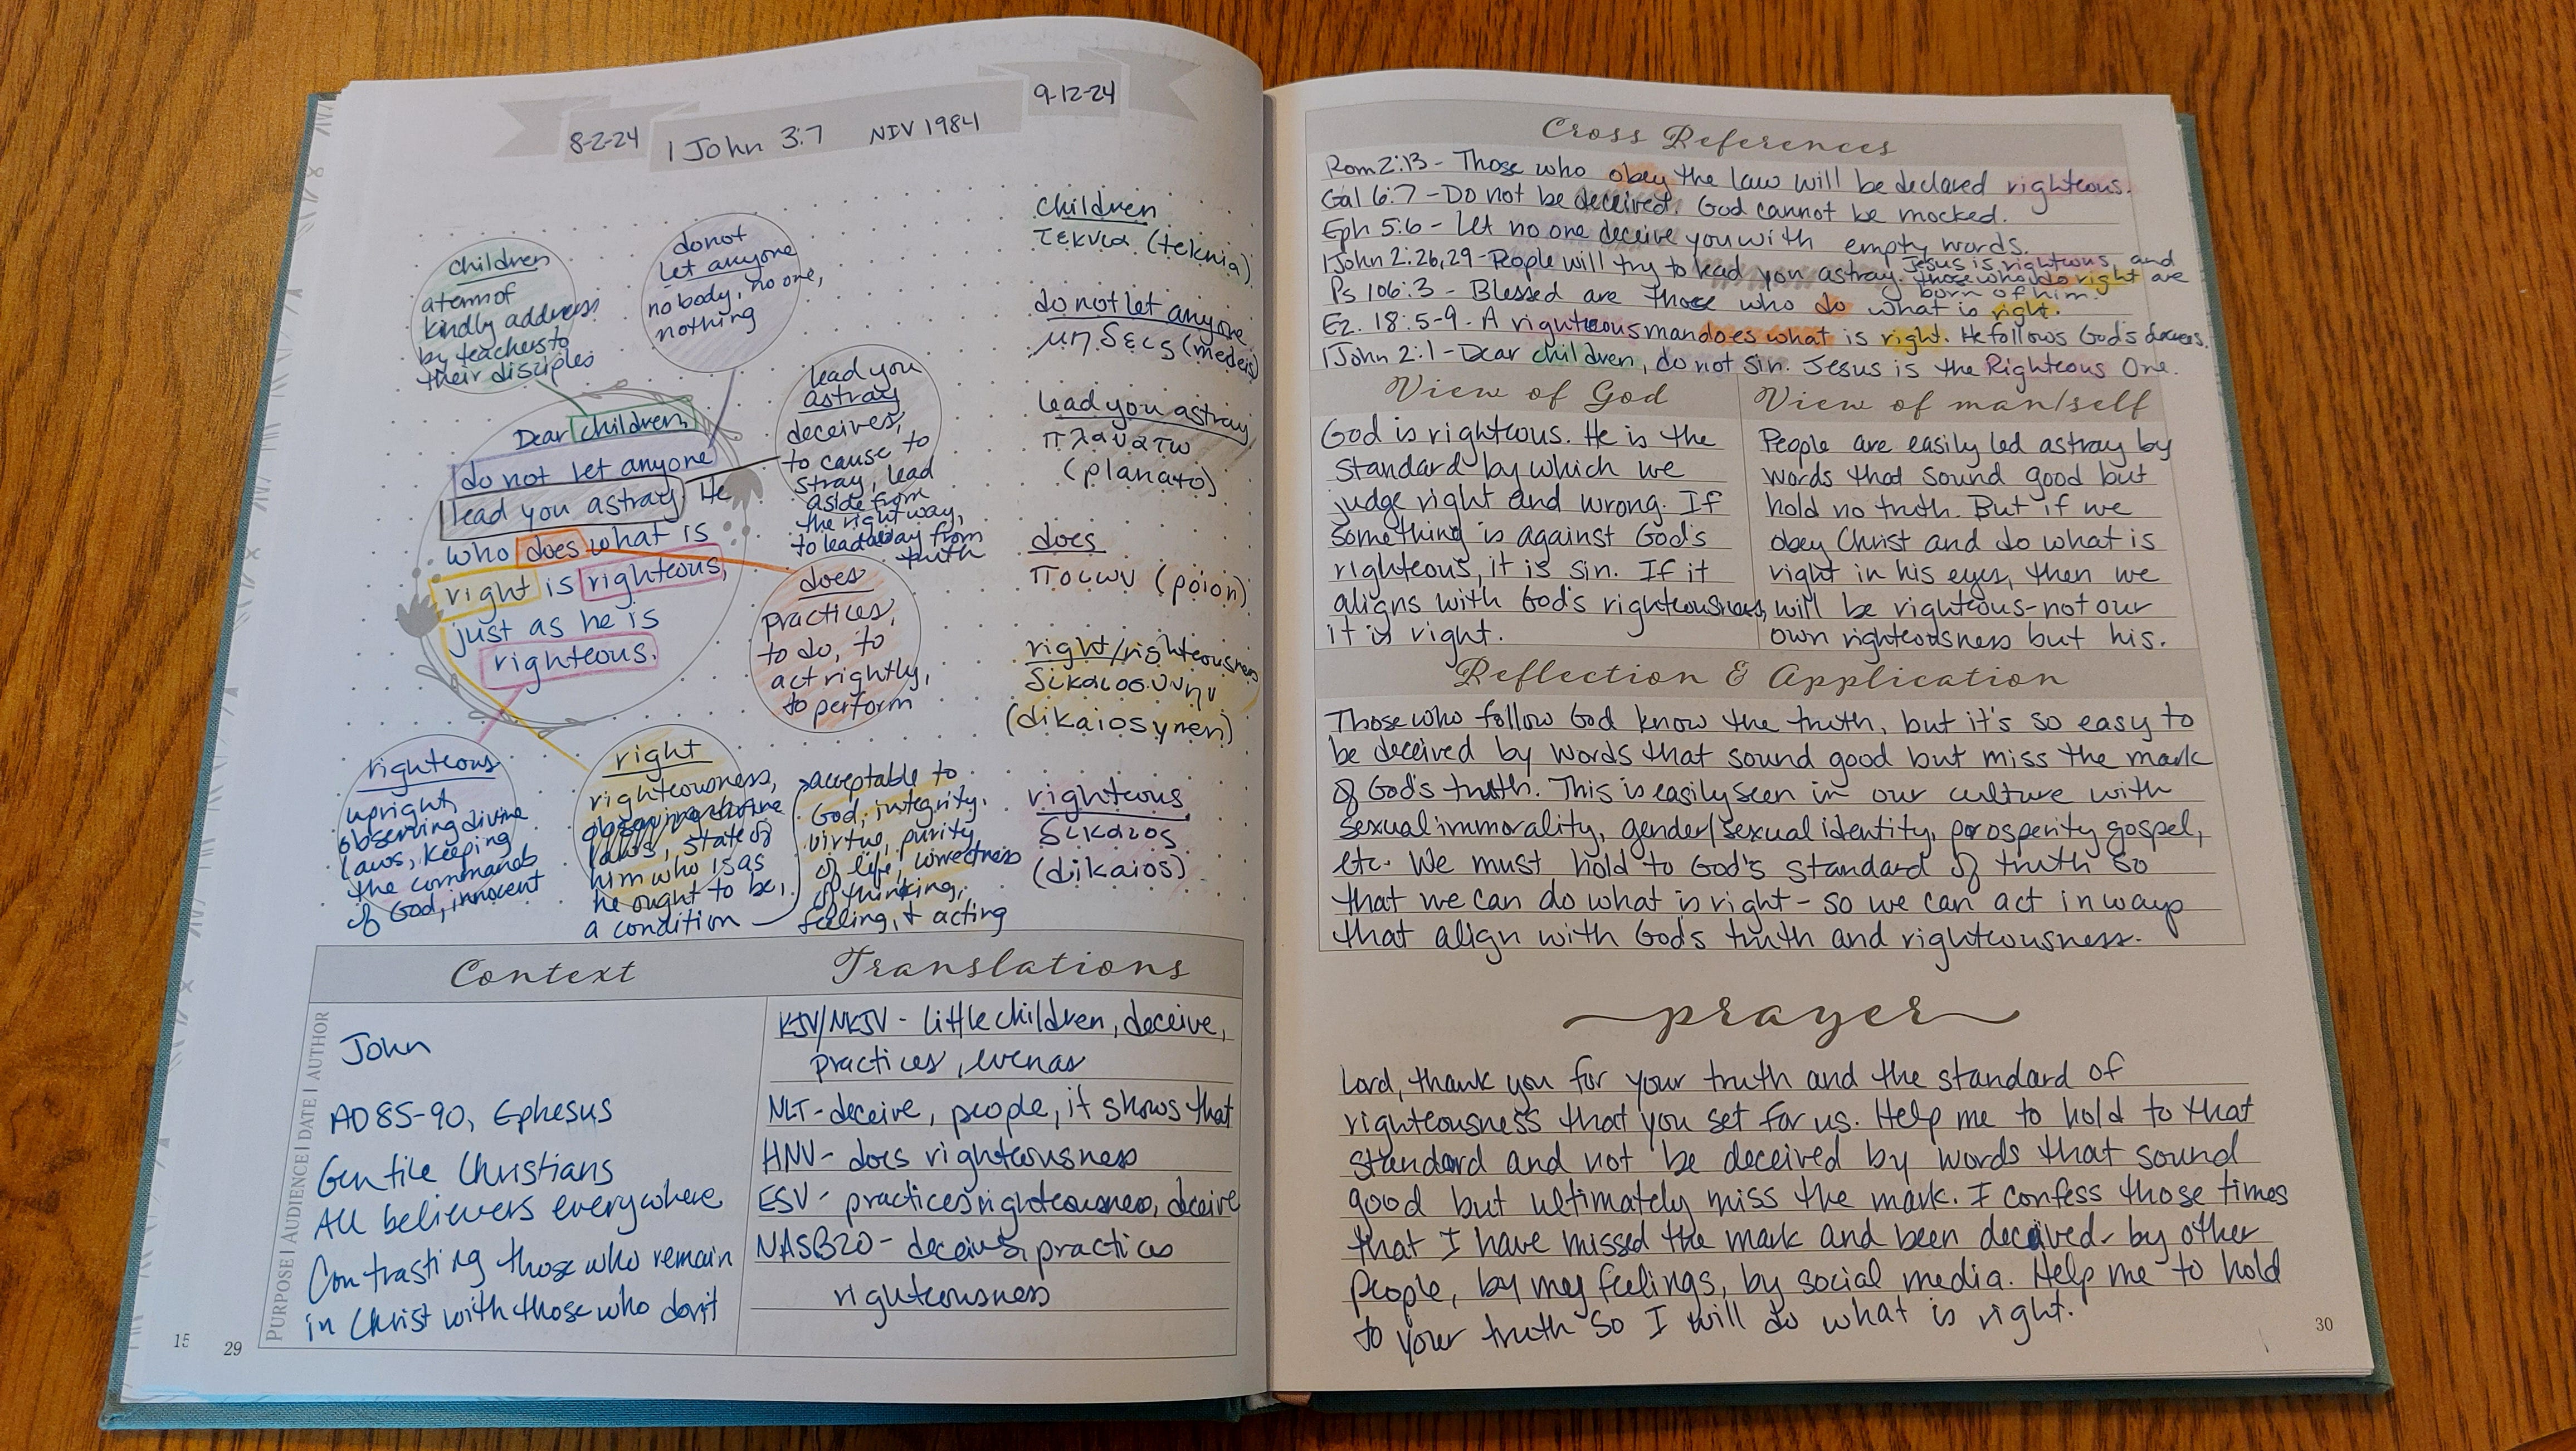 8-2-24
1 John 3:7 NIV 1984
9-12-24
children
a term of
kindly address
by teachers to
their disciples
do not
let anyone
nobody, no one,
nothing
lead you
astray
deceives,
to cause to
stray, lead
aside from
the right way,
to lead away from
truth
Dear children,
do not let anyone
lead you astray. He
who does what is
right is righteous,
just as he is
righteous.
does
practices,
to do, to
act rightly,
to perform
righteous
upright,
observing divine
laws, keeping
the commands
of God, innocent
right
righteousness,
observing divine
laws, state of
him who is as
he ought to be,
a condition
acceptable to
God, integrity,
virtue, purity
of life, correctness
of thinking,
feeling, & acting
children
τεκνια (teknia)
do not let anyone
μηδεις (medeis)
lead you astray
πλανατω
(planato)
does
ποιων (poion)
right/righteousness
δικαιοσυνην
(dikaiosynen)
righteous
δικαιος
(dikaios)
Context
PURPOSE | AUDIENCE | DATE | AUTHOR
John
AD 85-90, Ephesus
Gentile Christians
All believers everywhere
Contrasting those who remain
in Christ with those who don't
Translations
KJV/NKJV - little children, deceive,
practices, even as
NLT - deceive, people, it shows that
HNV - does righteousness
ESV - practices righteousness, deceive
NASB20 - deceive, practices
righteousness
15
29
Cross References
Rom 2:13 - Those who obey the law will be declared righteous.
Gal 6:7 - Do not be deceived. God cannot be mocked.
Eph 5:6 - Let no one deceive you with empty words.
1 John 2:26,29 - People will try to lead you astray. Jesus is righteous, and
those who do right are
born of him.
Ps 106:3 - Blessed are those who do what is right.
Ez. 18:5-9 - A righteous man does what is right. He follows God's decrees.
1 John 2:1 - Dear children, do not sin. Jesus is the Righteous One.
View of God
God is righteous. He is the
standard by which we
judge right and wrong. If
something is against God's
righteous, it is sin. If it
aligns with God's righteousness,
it is right.
View of man/self
People are easily led astray by
words that sound good but
hold no truth. But if we
obey Christ and do what is
right in his eyes, then we
will be righteous - not our
own righteousness but his.
Reflection & Application
Those who follow God know the truth, but it's so easy to
be deceived by words that sound good but miss the mark
of God's truth. This is easily seen in our culture with
sexual immorality, gender/sexual identity, prosperity gospel,
etc. We must hold to God's standard of truth so
that we can do what is right - so we can act in ways
that align with God's truth and righteousness.
prayer
Lord, thank you for your truth and the standard of
righteousness that you set for us. Help me to hold to that
standard and not be deceived by words that sound
good but ultimately miss the mark. I confess those times
that I have missed the mark and been deceived - by other
people, by my feelings, by social media. Help me to hold
to your truth so I will do what is right.
30